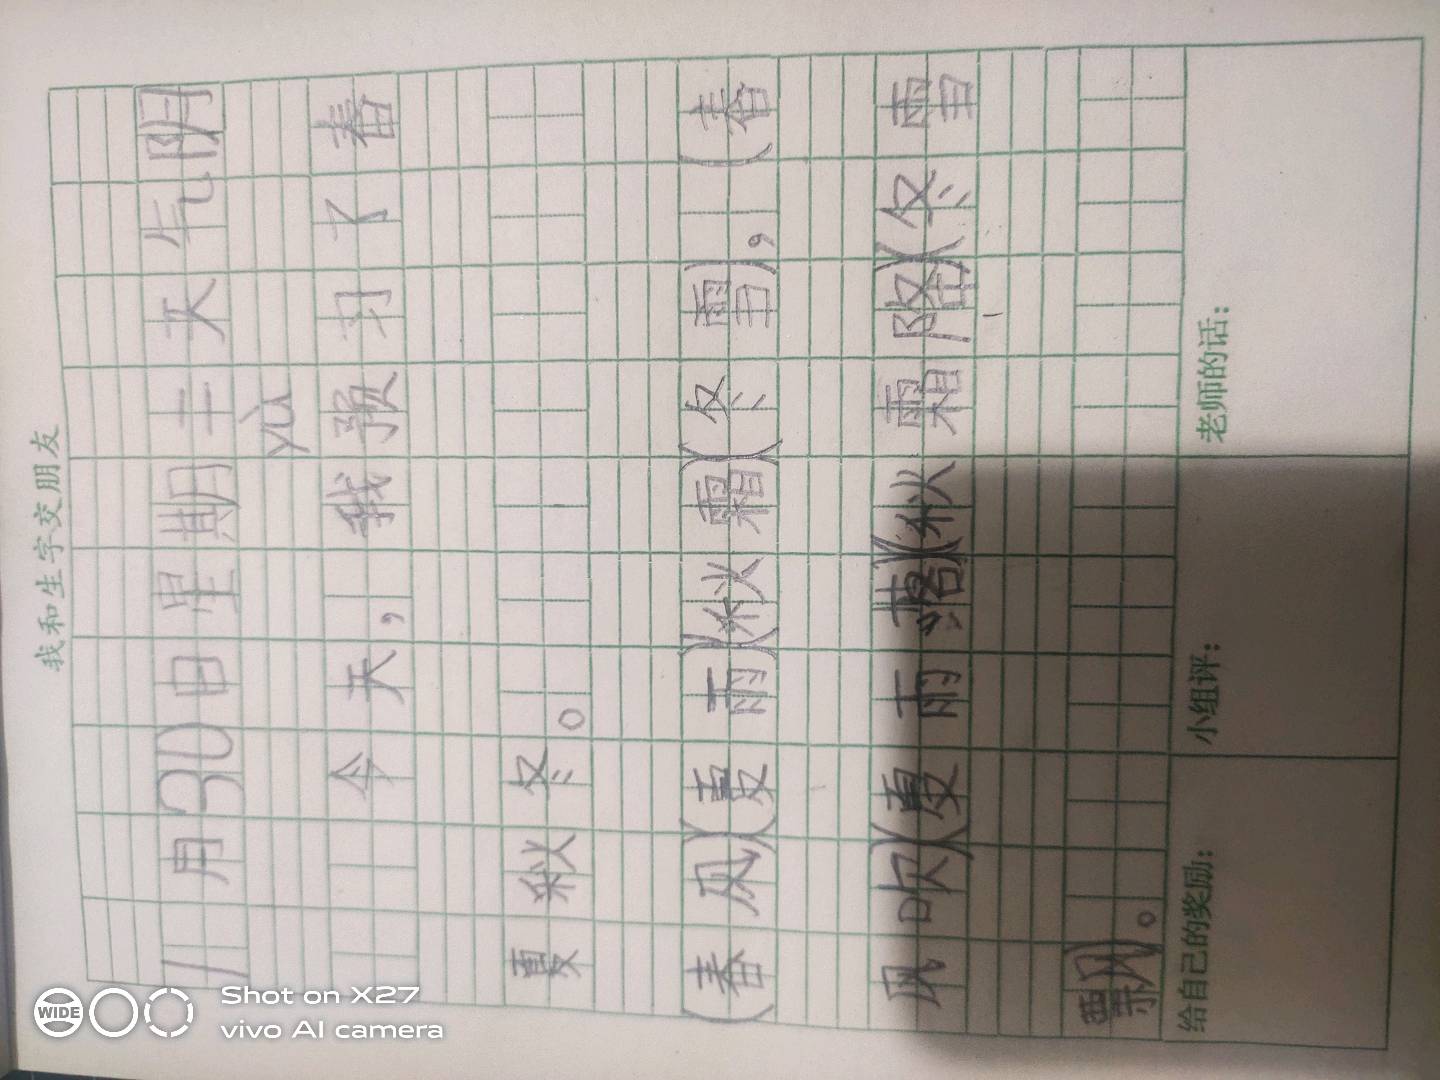 我和生字交朋友
1月30日星期三天气阴
yù
今天，我预习了春
夏秋冬。
(春风)(夏雨)(秋霜)(冬雪)，(春
风吹)(夏雨落)(秋霜降)(冬雪
飘)。
给自己的奖励：
小组评：
老师的话：
WIDE
Shot on X27
vivo AI camera